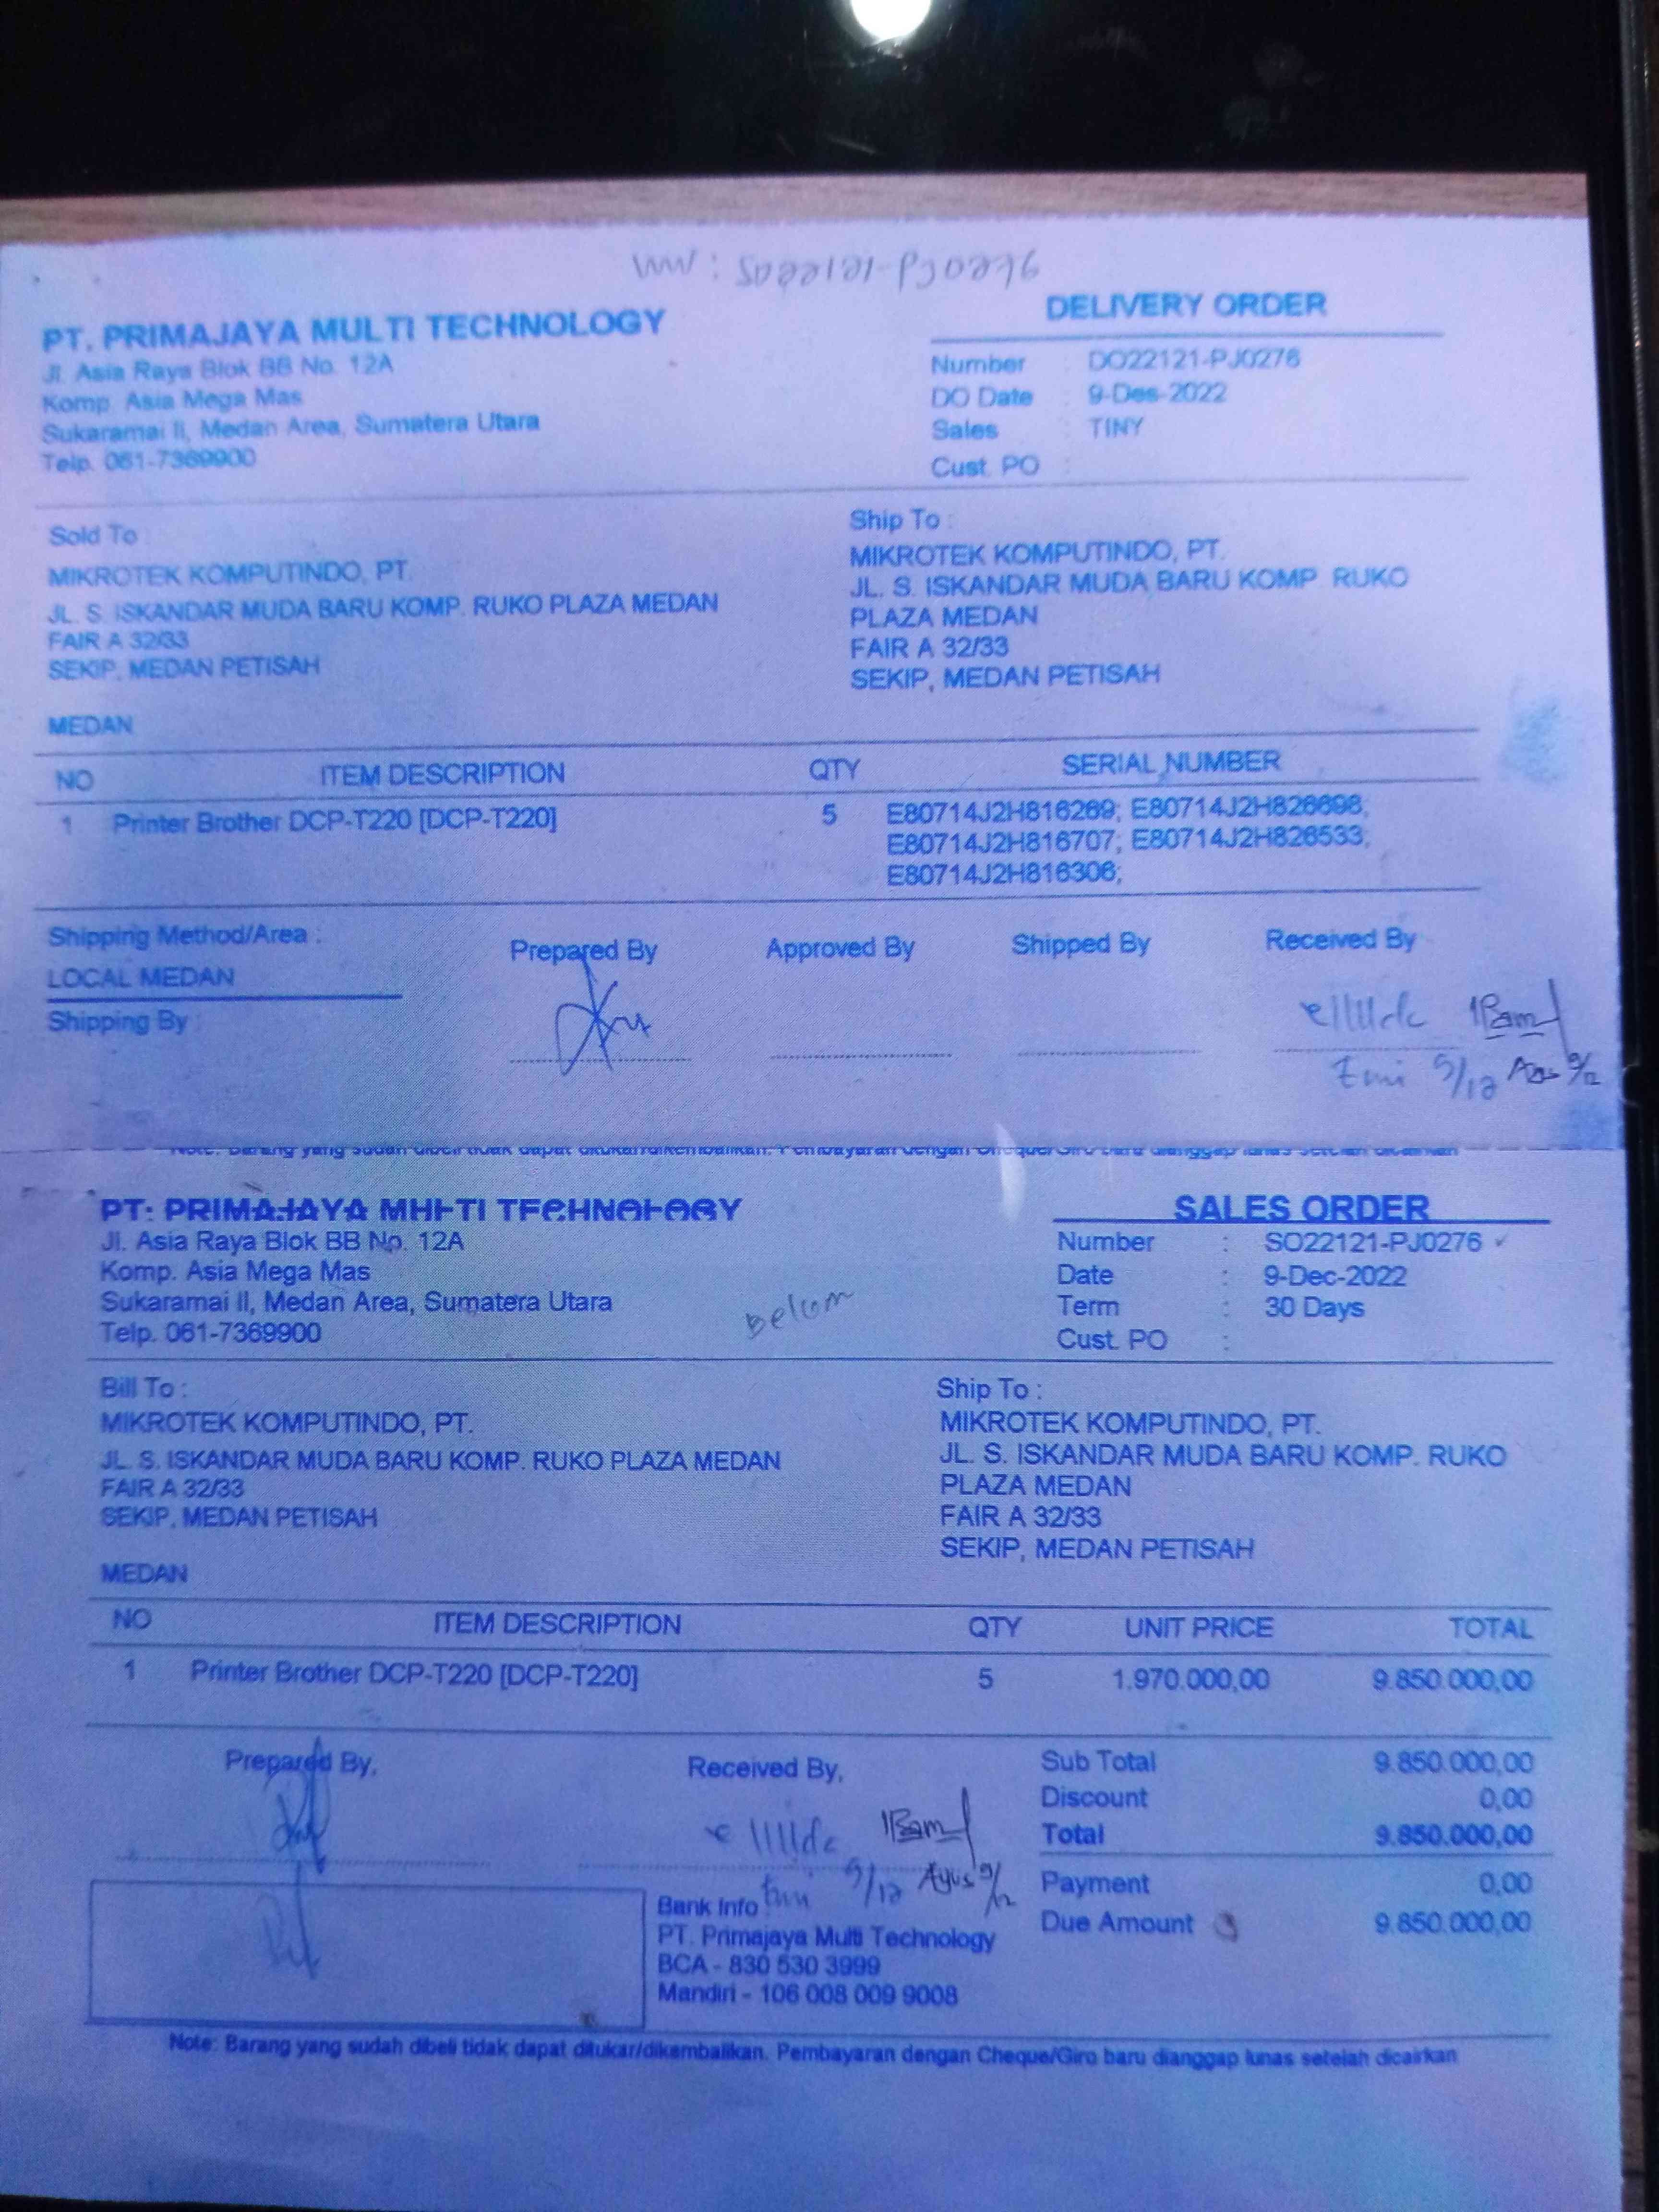 SO22121-PJ0276
PT. PRIMAJAYA MULTI TECHNOLOGY
Jl. Asia Raya Blok BB No. 12A
Komp. Asia Mega Mas
Sukaramai II, Medan Area, Sumatera Utara
Telp. 061-7369900
DELIVERY ORDER
Number : DO22121-PJ0276
DO Date : 9-Des-2022
Sales : TINY
Cust. PO :
Sold To :
MIKROTEK KOMPUTINDO, PT.
JL. S. ISKANDAR MUDA BARU KOMP. RUKO PLAZA MEDAN
FAIR A 32/33
SEKIP, MEDAN PETISAH
MEDAN
Ship To :
MIKROTEK KOMPUTINDO, PT.
JL. S. ISKANDAR MUDA BARU KOMP. RUKO
PLAZA MEDAN
FAIR A 32/33
SEKIP, MEDAN PETISAH
NO ITEM DESCRIPTION QTY SERIAL NUMBER
1 Printer Brother DCP-T220 [DCP-T220] 5 E80714J2H816269; E80714J2H826698;
E80714J2H816707; E80714J2H826533;
E80714J2H816306;
Shipping Method/Area :
LOCAL MEDAN
Shipping By :
Prepared By Approved By Shipped By Received By
9/12 9/12
Note: Barang yang sudah dibeli tidak dapat ditukar/dikembalikan. Pembayaran dengan Cheque/Giro baru dianggap lunas setelah dicairkan
PT. PRIMAJAYA MULTI TECHNOLOGY
Jl. Asia Raya Blok BB No. 12A
Komp. Asia Mega Mas
Sukaramai II, Medan Area, Sumatera Utara
Telp. 061-7369900
Belum
SALES ORDER
Number : SO22121-PJ0276
Date : 9-Dec-2022
Term : 30 Days
Cust. PO :
Bill To :
MIKROTEK KOMPUTINDO, PT.
JL. S. ISKANDAR MUDA BARU KOMP. RUKO PLAZA MEDAN
FAIR A 32/33
SEKIP, MEDAN PETISAH
MEDAN
Ship To :
MIKROTEK KOMPUTINDO, PT.
JL. S. ISKANDAR MUDA BARU KOMP. RUKO
PLAZA MEDAN
FAIR A 32/33
SEKIP, MEDAN PETISAH
NO ITEM DESCRIPTION QTY UNIT PRICE TOTAL
1 Printer Brother DCP-T220 [DCP-T220] 5 1.970.000,00 9.850.000,00
Prepared By, Received By,
9/12 Agus 9/12
Sub Total 9.850.000,00
Discount 0,00
Total 9.850.000,00
Payment 0,00
Due Amount 9.850.000,00
Bank Info
PT. Primajaya Multi Technology
BCA - 830 530 3999
Mandiri - 106 008 009 9008
Note: Barang yang sudah dibeli tidak dapat ditukar/dikembalikan. Pembayaran dengan Cheque/Giro baru dianggap lunas setelah dicairkan